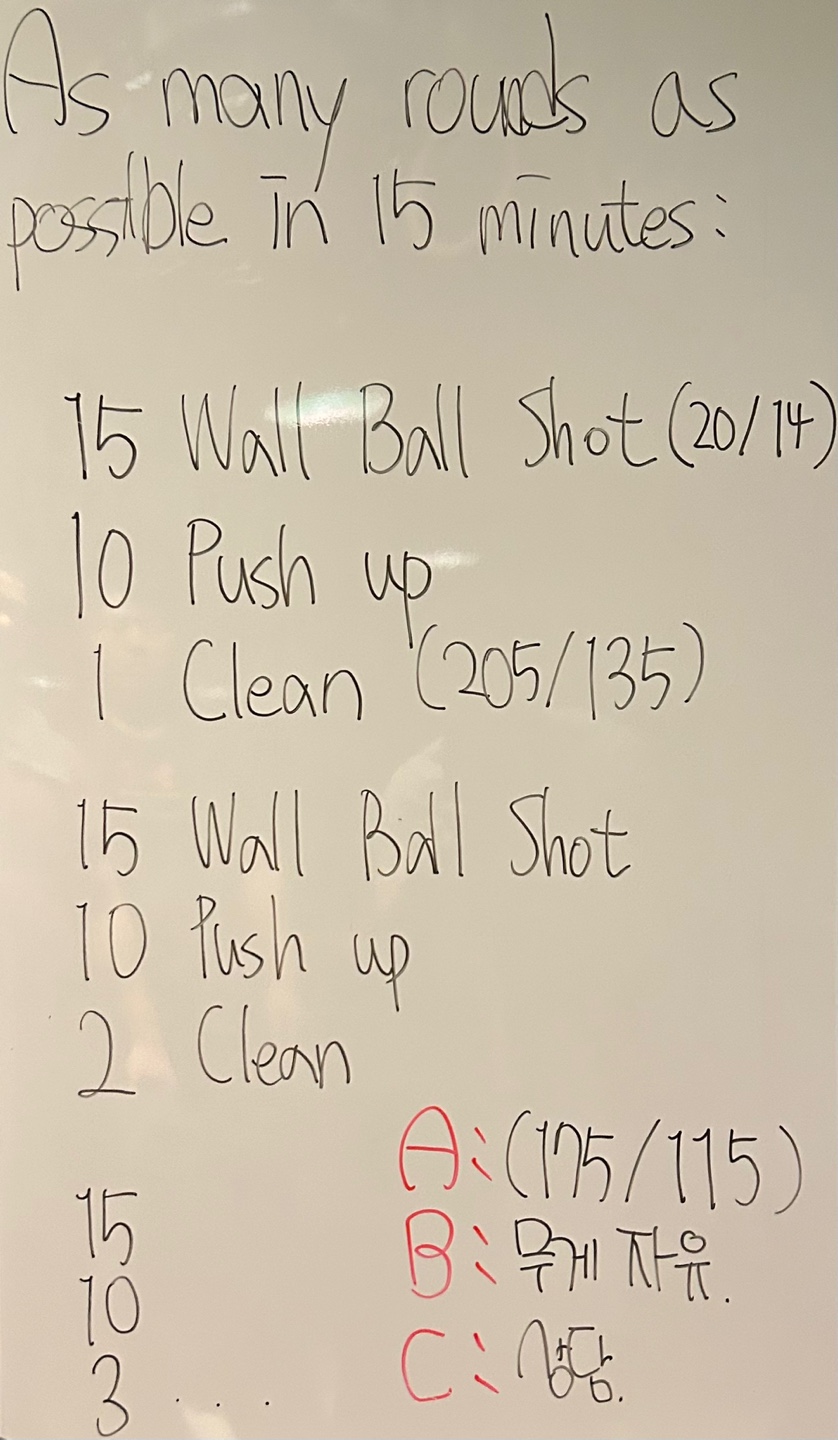 As many rounds as
possible in 15 minutes:
15 Wall Ball Shot (20/14)
10 Push up
1 Clean (205/135)
15 Wall Ball Shot
10 Push up
2 Clean
15
10
3 ....
A: (175/115)
B: 무게 자유.
C: 상담.